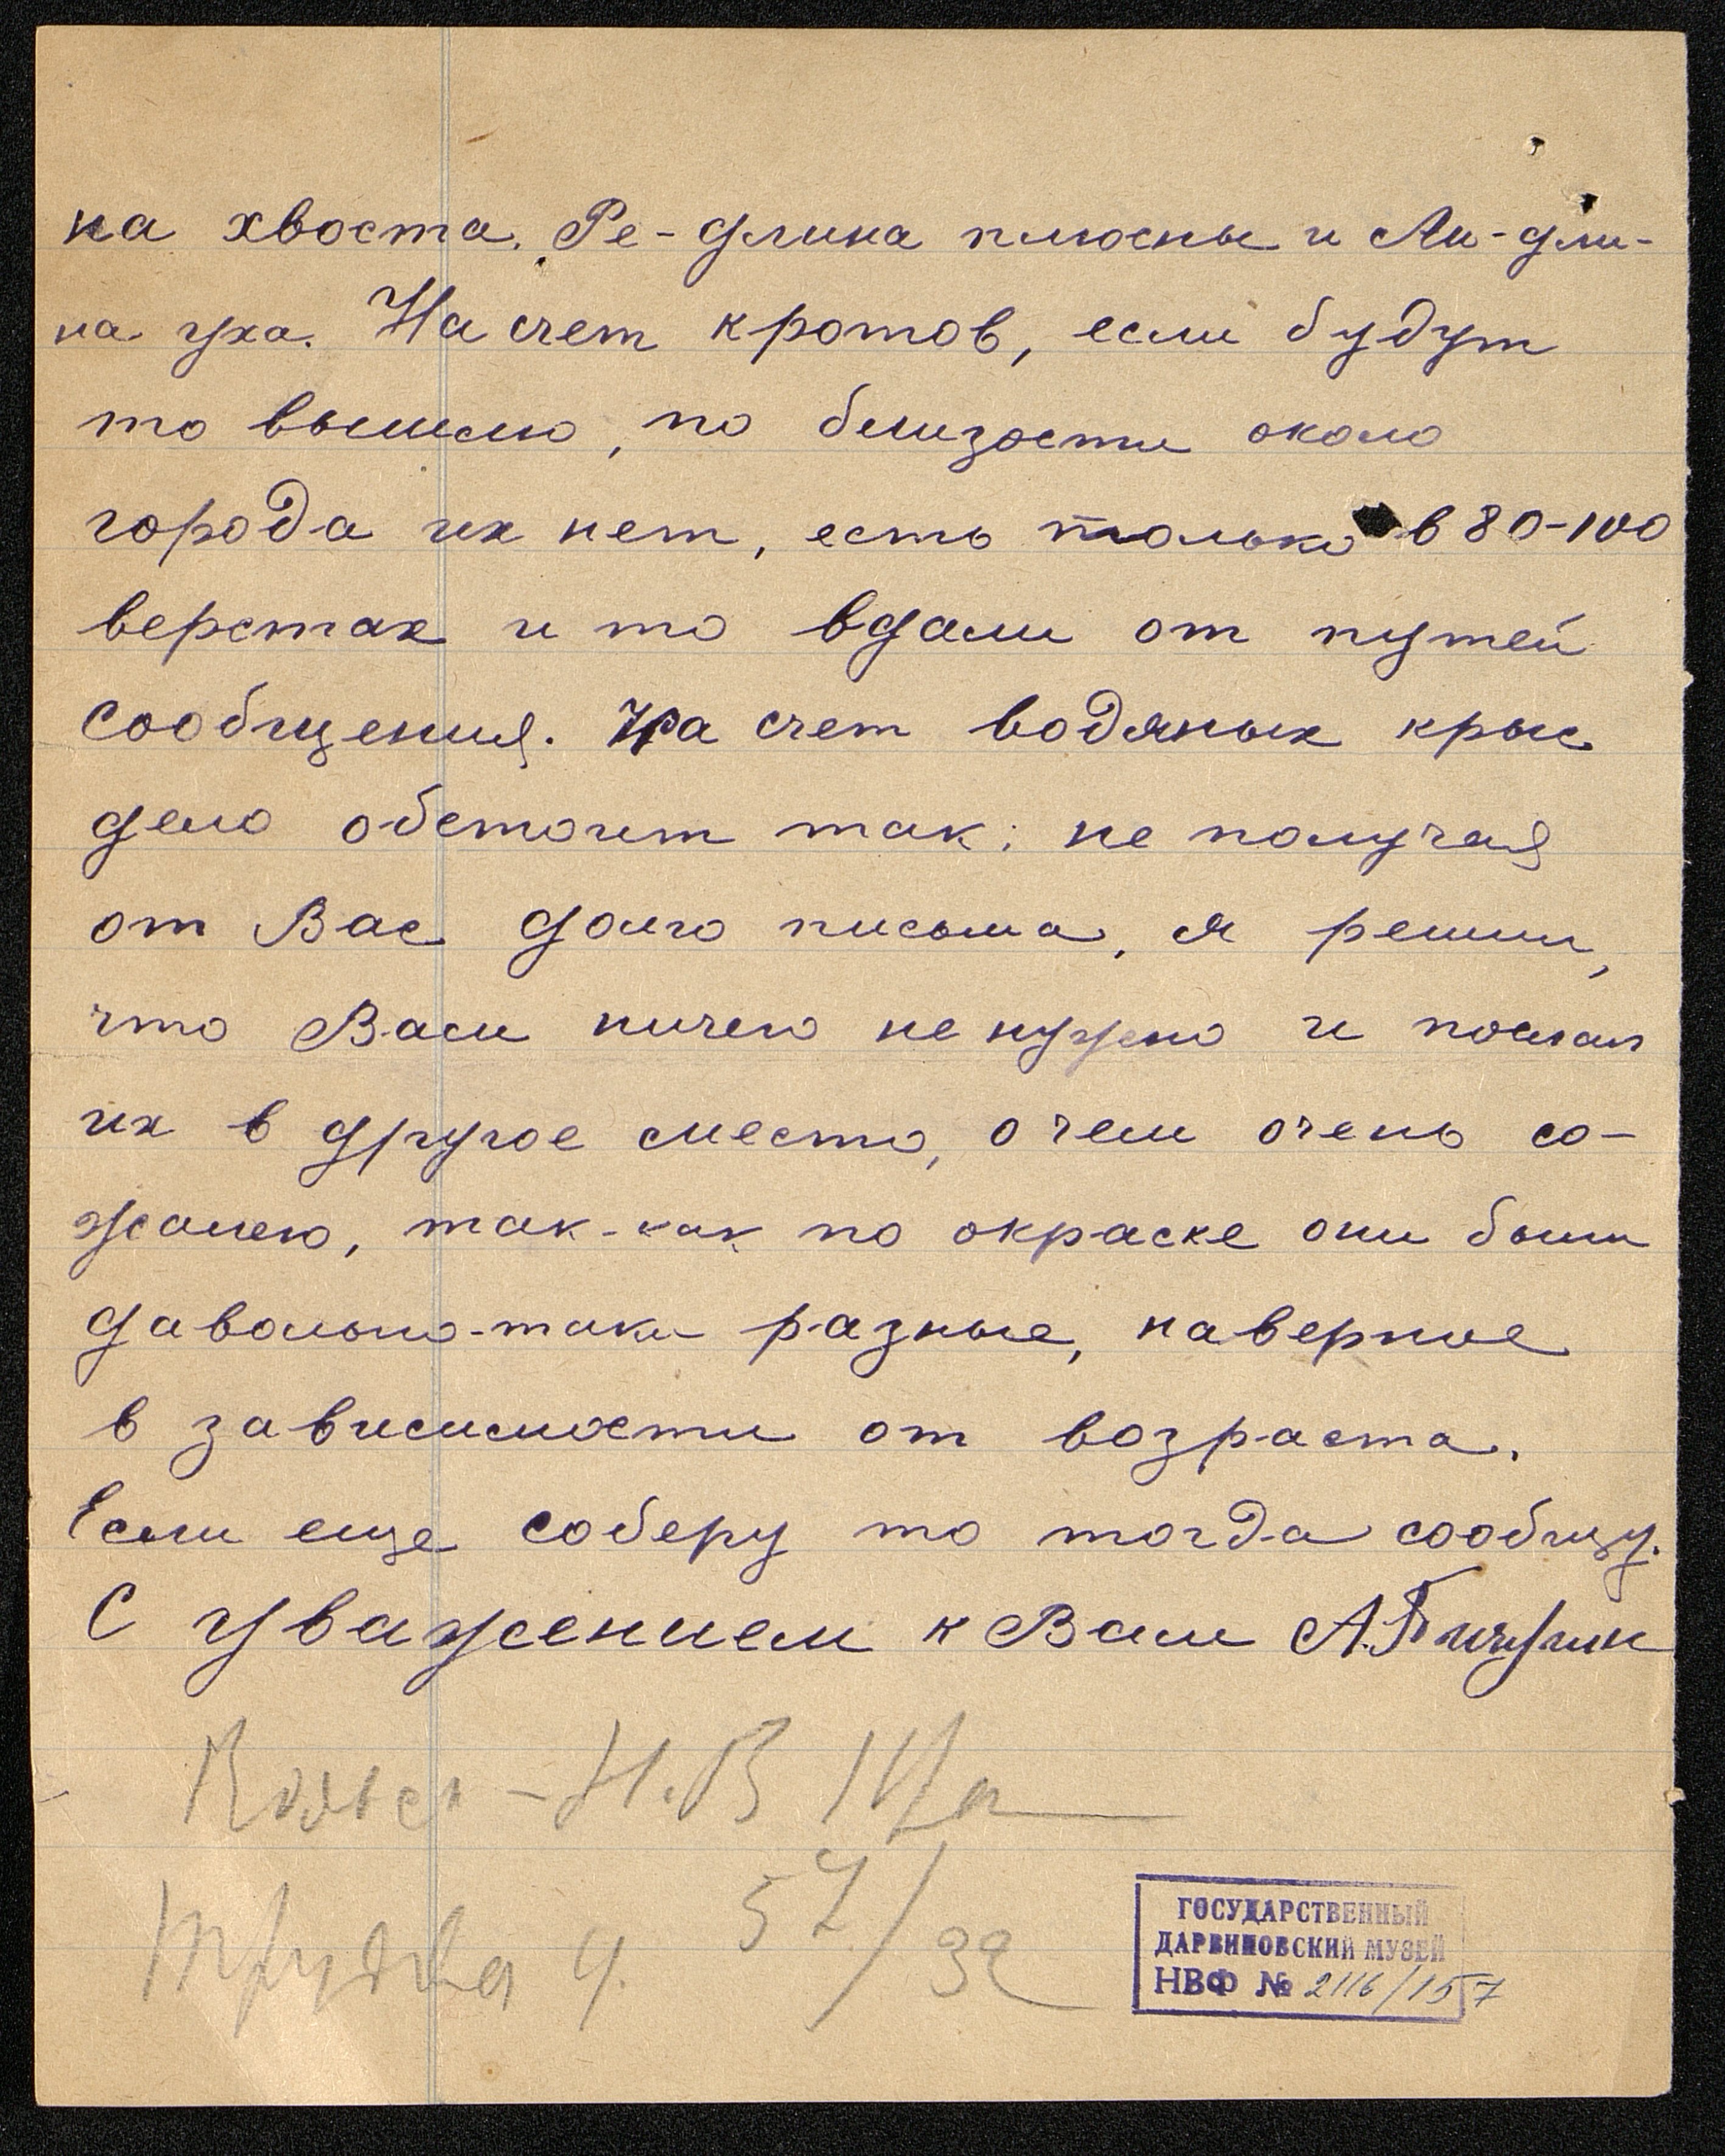 на хвоста. Ре-длина плюсны и Аи-дли-
на уха. На счет кротов, если будут
то вышлю, по близости около
города их нет, есть только в 80-100
верстах и то вдали от путей
сообщения. На счет водяных крыс
дело обстоит так: не получая
от Вас долго письма, я решил,
что Вам ничего не нужно и послал
их в другое место, о чем очень со-
жалею, так-как по окраске они были
давольно-таки разные, наверное
в зависимости от возраста.
Если еще соберу то тогда сообщу.
С уважением к Вам А.
Н.В
4. 57/32
ГОСУДАРСТВЕННЫЙ
ДАРВИНОВСКИЙ МУЗЕЙ
НВФ № 2116/157